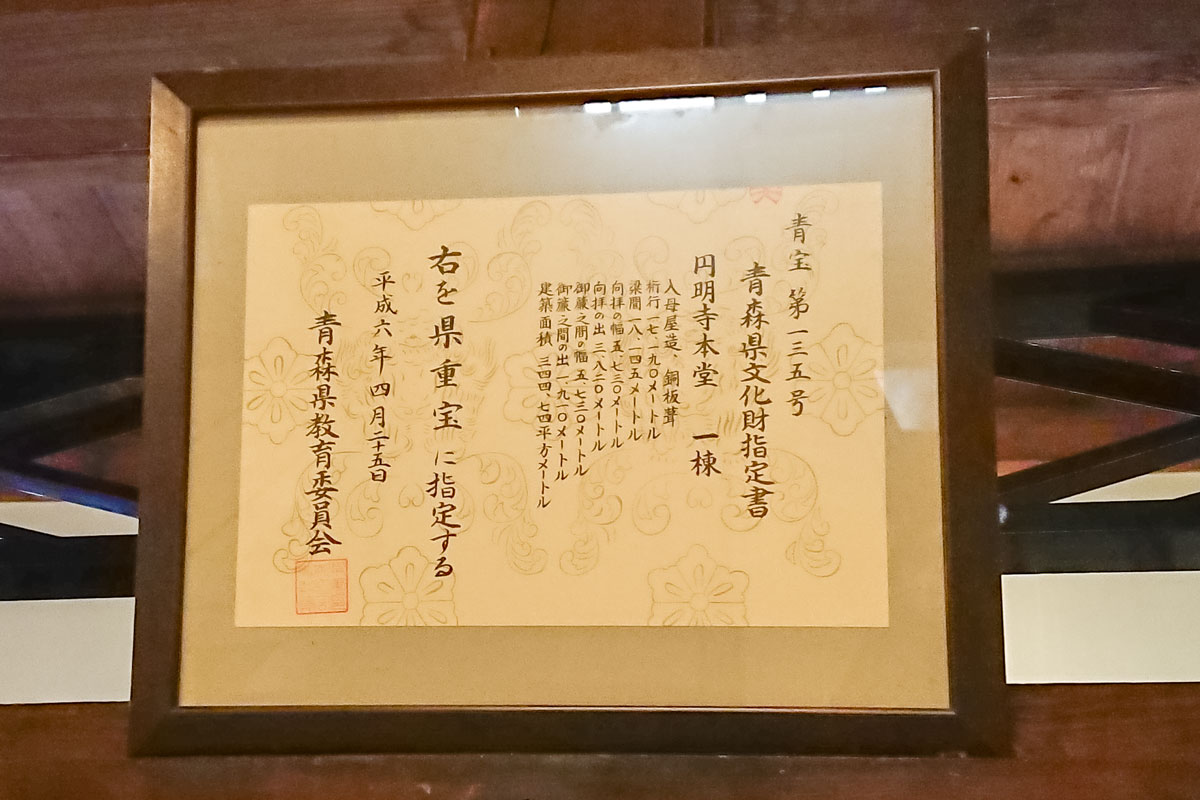 青宝 第一三五号
青森県文化財指定書
円明寺本堂 一棟
入母屋造、銅板葺
桁行一七、一九〇メートル
梁間一八、一四五メートル
向拝の幅五、七三〇メートル
向拝の出三、八三〇メートル
御簾之間の幅五、七三〇メートル
御簾之間の出一、九一〇メートル
建築面積 三四四、七四平方メートル
右を県重宝に指定する
平成六年四月二十五日
青森県教育委員会